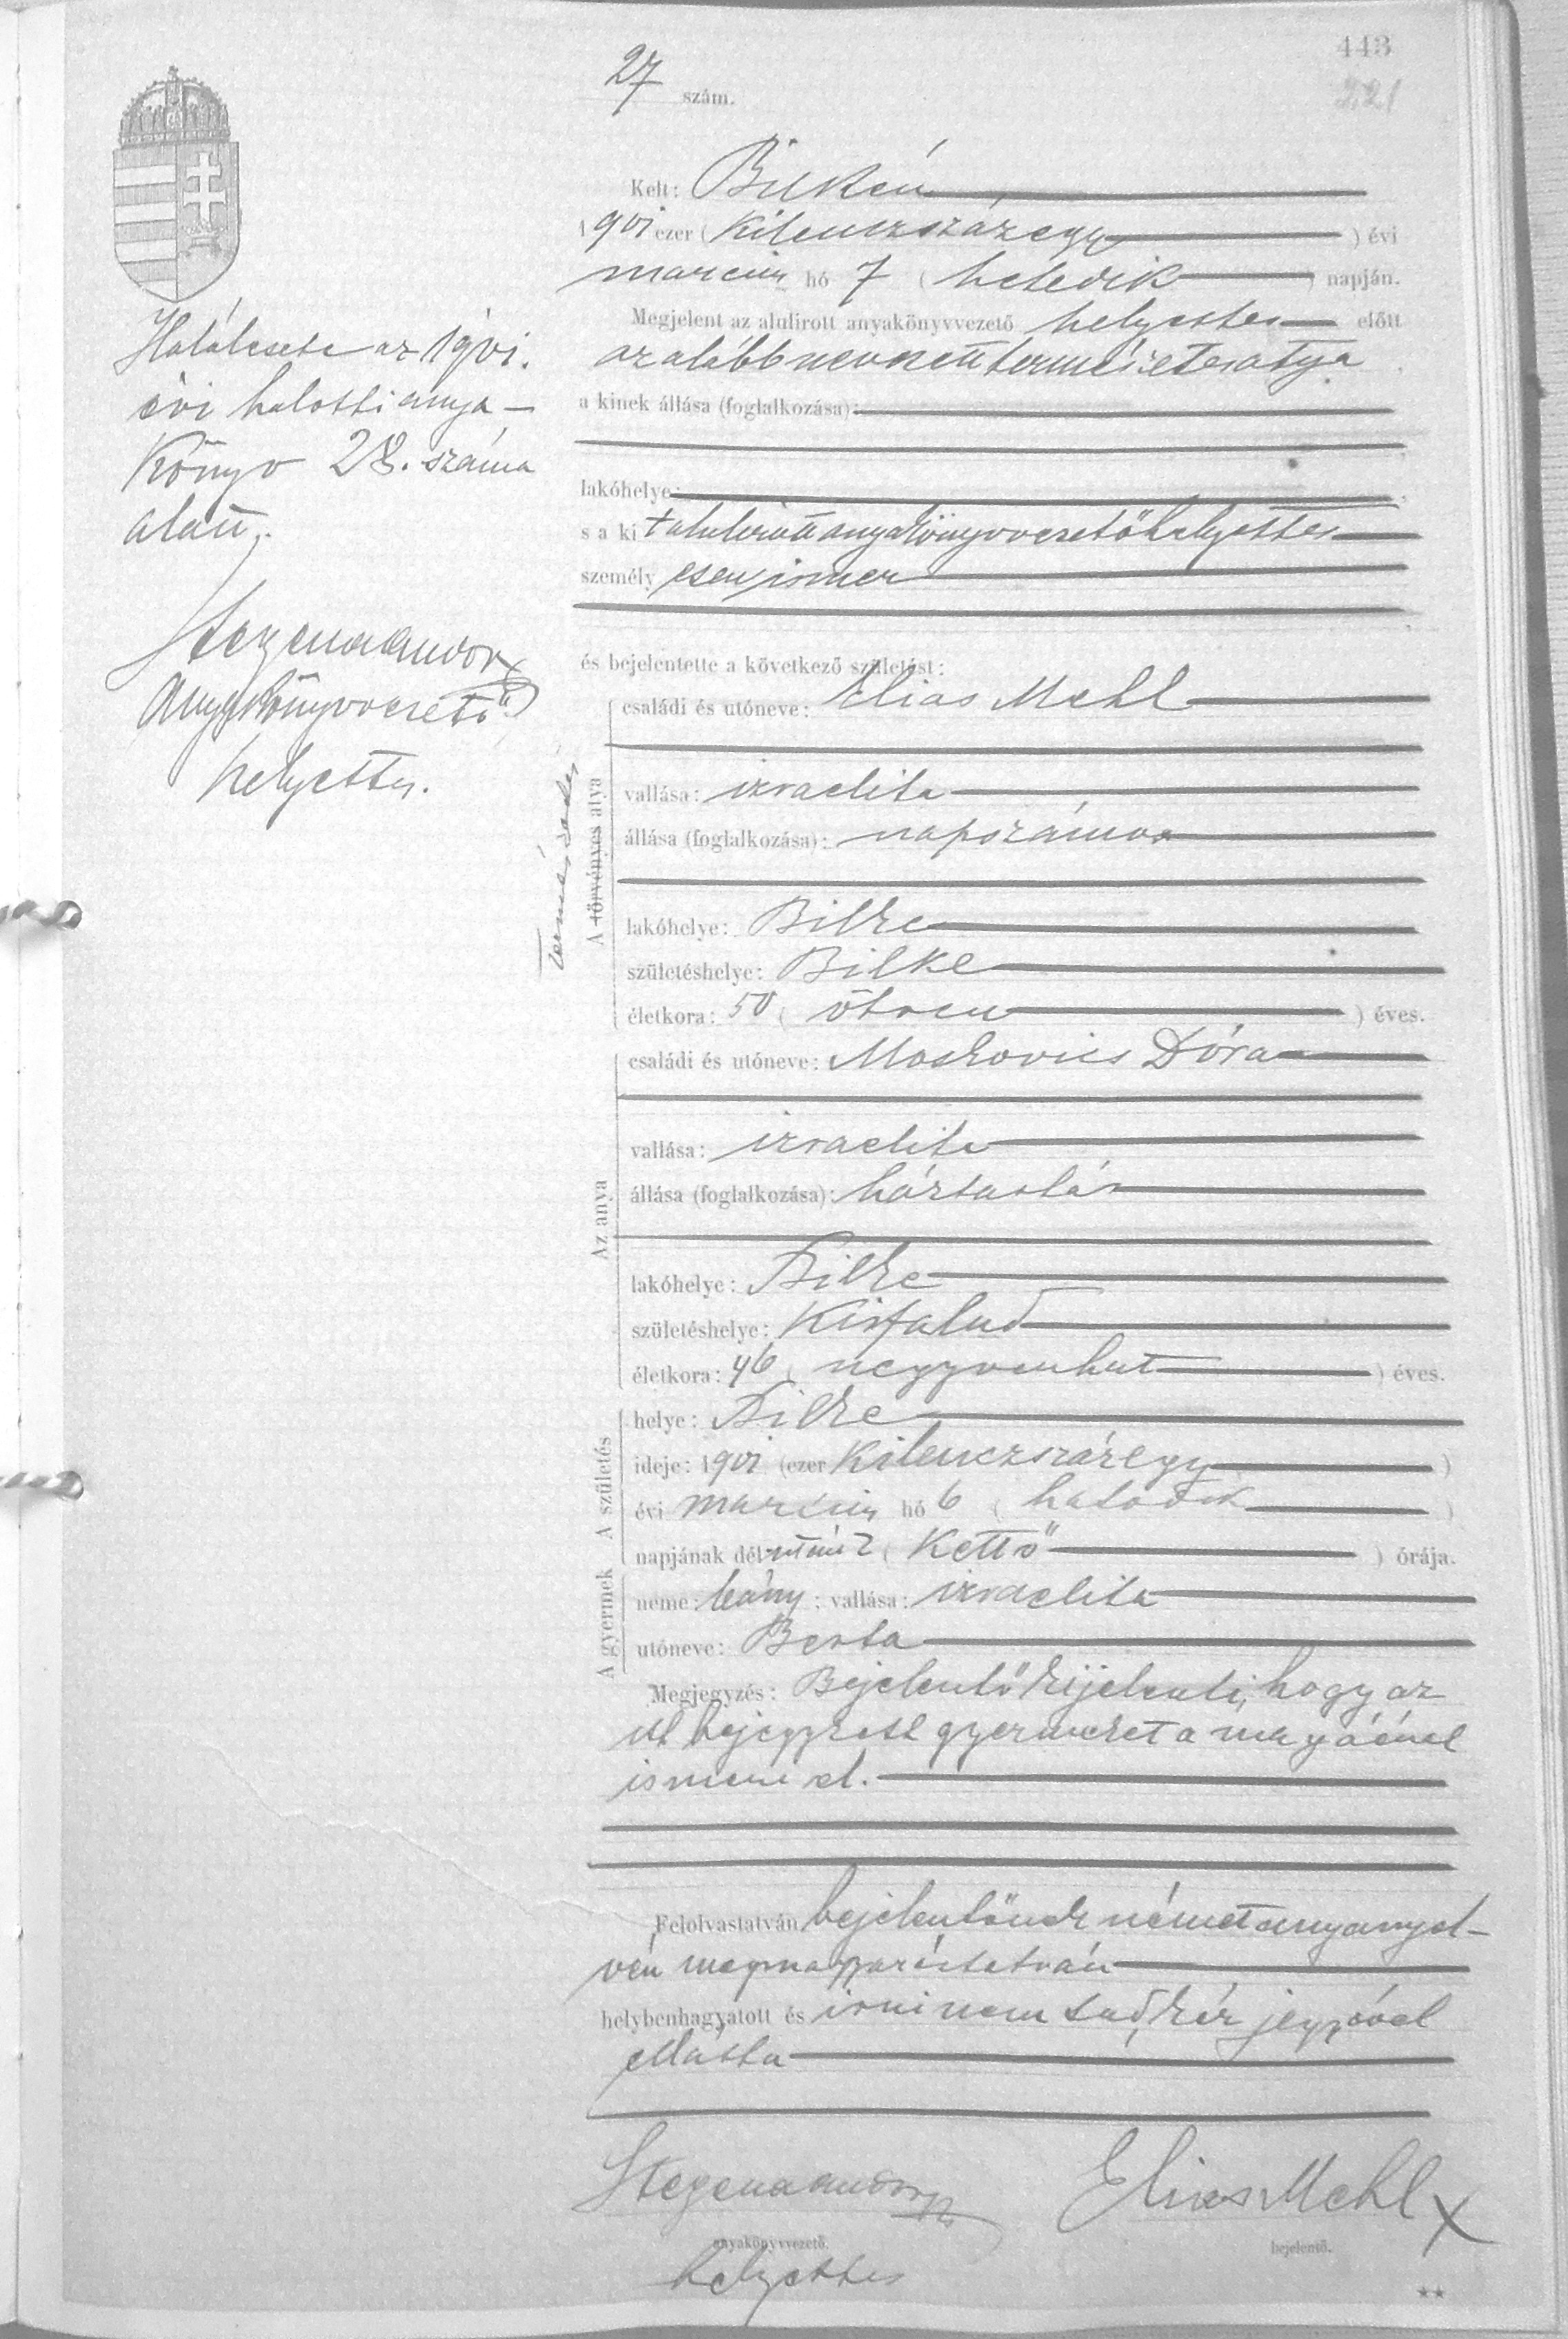 443
221
27 szám.
Kelt: Bilkén
1901 ezer (kilenczszázegy) évi
marcius hó 7 (hetedik) napján.
Megjelent az alulirott anyakönyvvezető helyettes előtt
az alább nevezett természetes atya
a kinek állása (foglalkozása):
lakóhelye:
s a ki t alulirott anyakönyvvezetőhelyettes
személyesen ismer
és bejelentette a következő születést:
A törvényes atya
természetes
családi és utóneve: Elias Mehl
vallása: izraelita
állása (foglalkozása): napszámos
lakóhelye: Bilke
születéshelye: Bilke
életkora: 50 (ötven) éves.
Az anya
családi és utóneve: Moskovics Dóra
vallása: izraelita
állása (foglalkozása): háztartás
lakóhelye: Bilke
születéshelye: Kisfalud
életkora: 46 (negyvenhat) éves.
A születés
helye: Bilke
ideje: 1901 (ezer kilenczszázegy)
évi marcius hó 6 (hatodik)
napjának délutáni 2 (kettő) órája.
A gyermek
neme: leány; vallása: izraelita
utóneve: Berta
Megjegyzés: Bejelentő kijelenti, hogy az
itt bejegyzett gyermeket a magáénak
ismeri el.
Felolvastatván bejelentőnek német anyanyel-
vén megmagyaráztatván
helybenhagyatott és irni nem tud, kéz jegyével
ellátta
Stegena Andor
anyakönyvvezető.
helyettes
Elias Mehl X
bejelentő.
Halálesete az 1901.
évi halotti anya-
könyv 28. száma
alatt.
Stegena Andor
Anyakönyvvezető
helyettes.